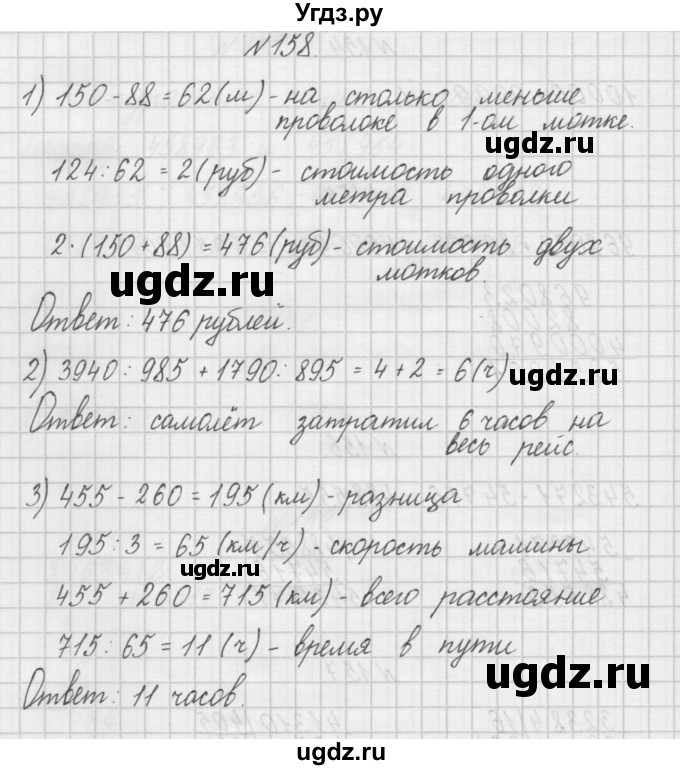 Угдз.ру
№158.
1) 150 - 88 = 62 (м) - на столько меньше
проволоке в 1-ом мотке.
ugdz.ru
124 : 62 = 2 (руб) - стоимость одного
метра проволки
2·(150 + 88) = 476 (руб) - стоимость двух
мотков.
ugdz.ru
ugdz.ru
Ответ: 476 рублей.
2) 3940 : 985 + 1790 : 895 = 4 + 2 = 6 (ч)
ugdz.ru
Ответ: самолёт затратил 6 часов на
весь рейс.
3) 455 - 260 = 195 (км) - разница
195 : 3 = 65 (км/ч) - скорость машины
ugdz.ru
455 + 260 = 715 (км) - всего расстояние
715 : 65 = 11 (ч) - время в пути
ugdz.ru
Ответ: 11 часов.
ugdz.ru